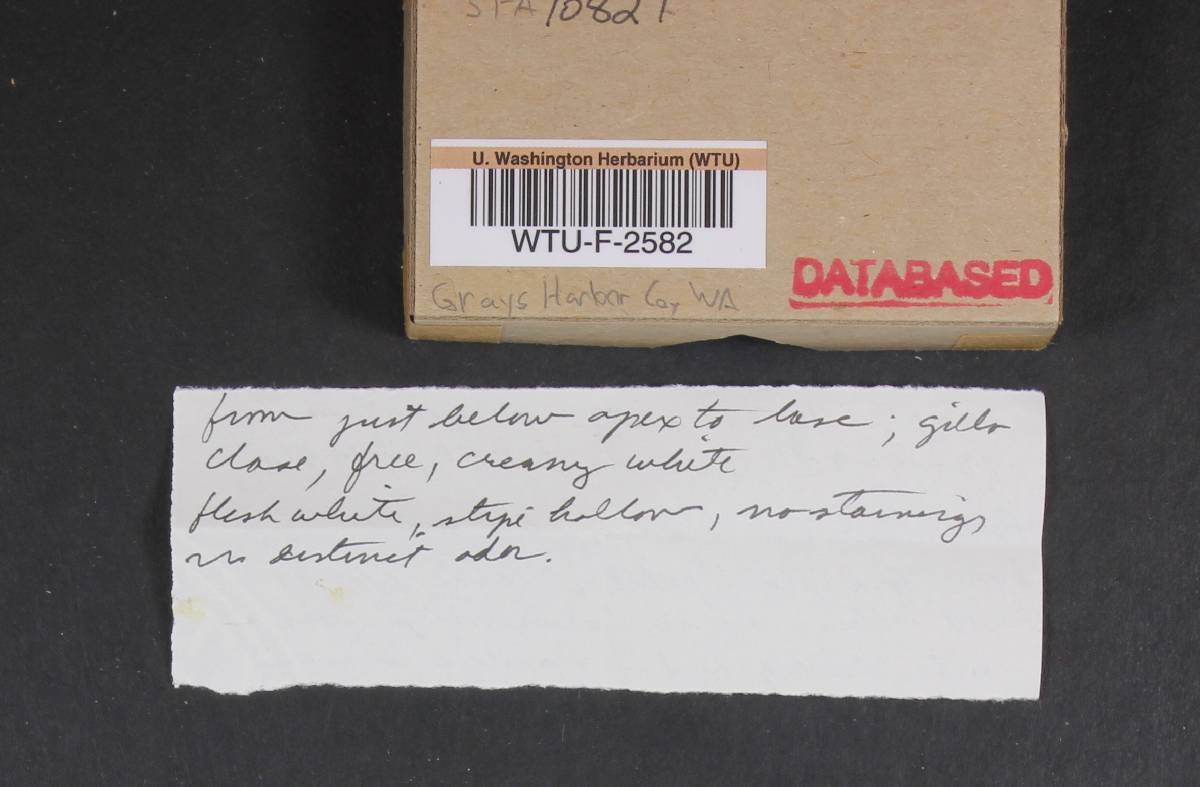 STA 10821
U. Washington Herbarium (WTU)
WTU-F-2582
DATABASED
Grays Harbor Co, WA
from just below apex to base; gills
close, free, creamy white
flesh white, stipe hollow, no staining,
no distinct odor.